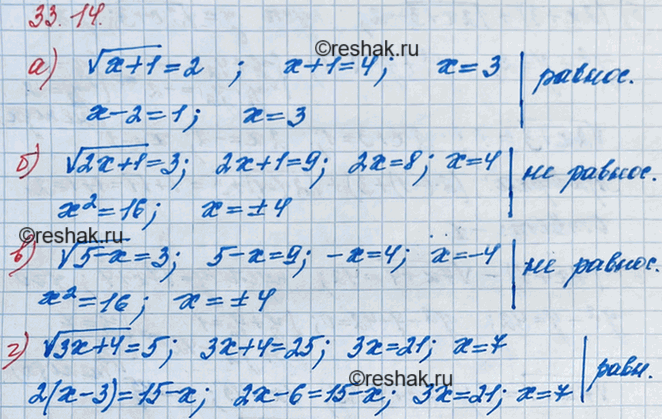 33.14.
©reshak.ru
а) √x+1=2 ; x+1=4; x=3
x-2=1; x=3
равнос.
б) √2x+1=3; 2x+1=9; 2x=8; x=4
x²=16; x=±4
не равнос.
©reshak.ru
в) √5-x=3; 5-x=9; -x=4; x=-4
x²=16; x=±4
не равнос.
г) √3x+4=5; 3x+4=25; 3x=21; x=7
2(x-3)=15-x; 2x-6=15-x; 3x=21; x=7
равн.
©reshak.ru